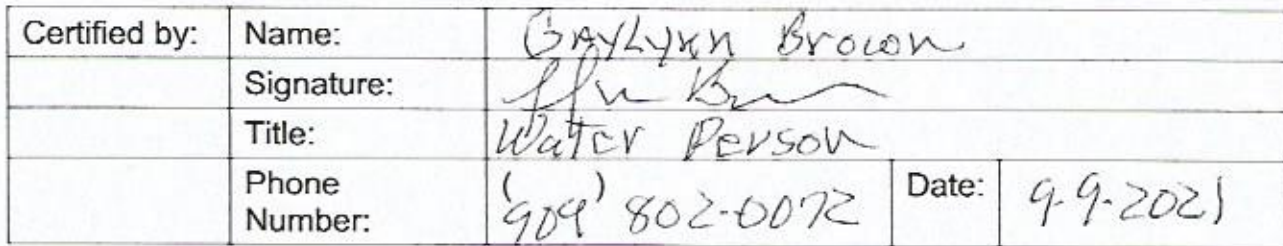 Certified by: Name: GAYLYNN Brown
Signature:
Title: Water Person
Phone Number: (909) 802-0072 Date: 9-9-2021